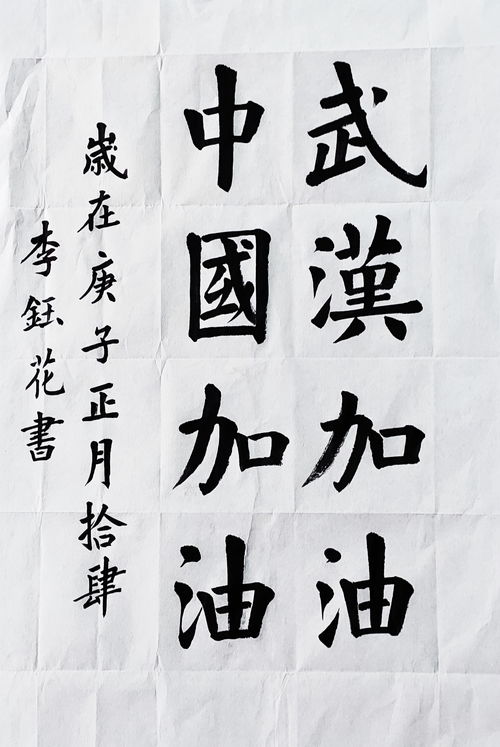 武漢加油
中國加油
歳在庚子正月拾肆
李鈺花書